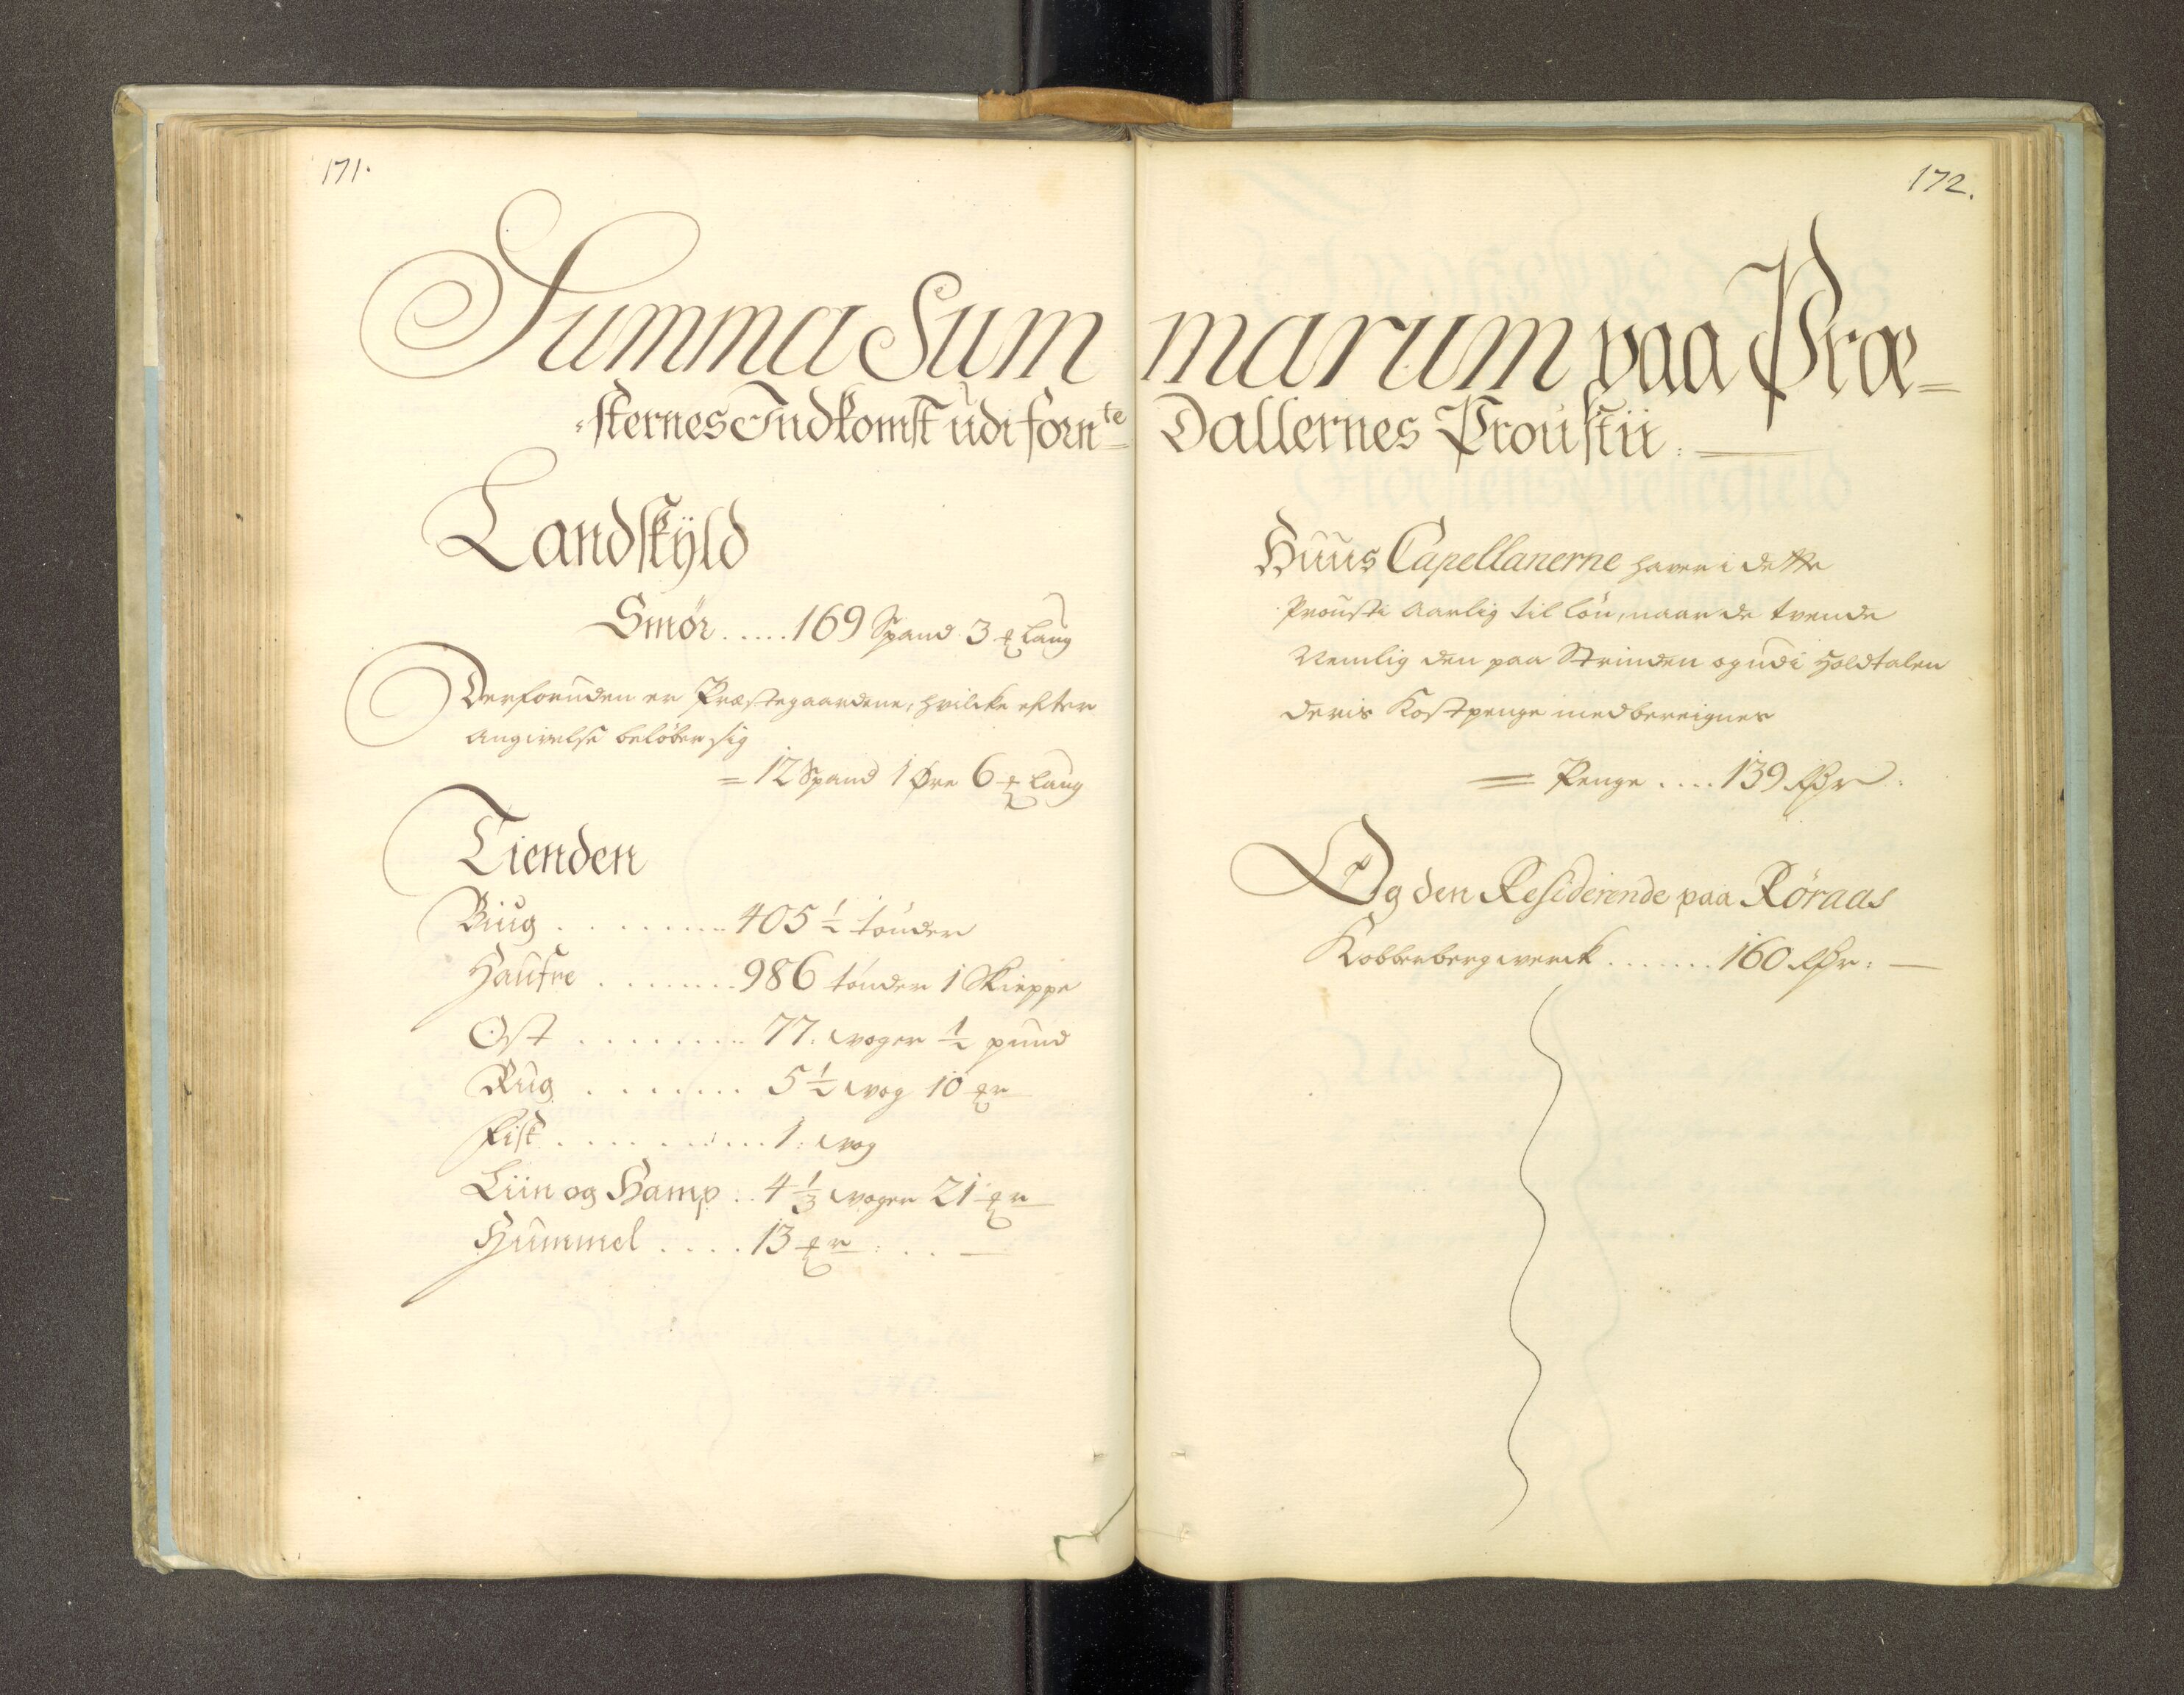 171.
172.
Summa Summarum paa Præ=
=sternes Indkomst udi forn^te Dallernes Proustii:
Landskÿld
Smör ..... 169 Spand 3 ℔ laug
Derforuden er Præstegaardene, hvilcke efter
Angivelse beløber sig
= 12 Spand 1 Øre 6 ℔ laug
Tienden
Biug ......... 405 ½ tönder
Haufre ........ 986 tönder 1 Skieppe
Ost ......... 77. woger ½ pund
Rug ....... 5 ½ wog 10 ℔r
Fisk .......... 1: wog
Liin og Hamp .. 4 ⅓ woger 21 ℔r
Hummel .... 13 ℔r: .. —
Huus Capellanerne haver i dette
Prousti Aarlig til lön, naar de tvende
Nemlig den paa Strinden og udi Holdtalen
deris Kostpenge medbereignes
= Penge .... 139 Rdr:
Og den Residerende paa Röraas
Kobberbergwerck ....... 160 Rdr: —